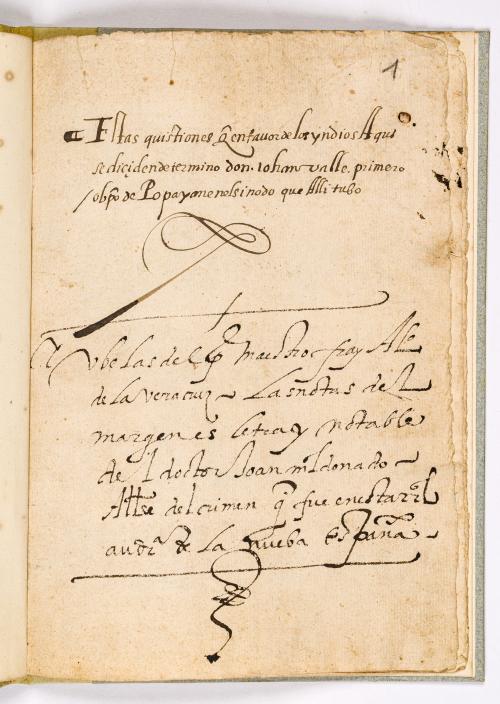 1
Estas quistiones q̃ en fauor de los yndios Aqui
se diçiden determino don. Iohan valle. primero
/ obpo de Popayan en el sinodo que Alli tubo
vbelas del p̃ Maestro fray Alº
de la veracruz Las notas del
margen es letra y notable
del doctor Joan mldonado
Allse del crimen q̃ fue en esta rrl
audiª de la nueba españa